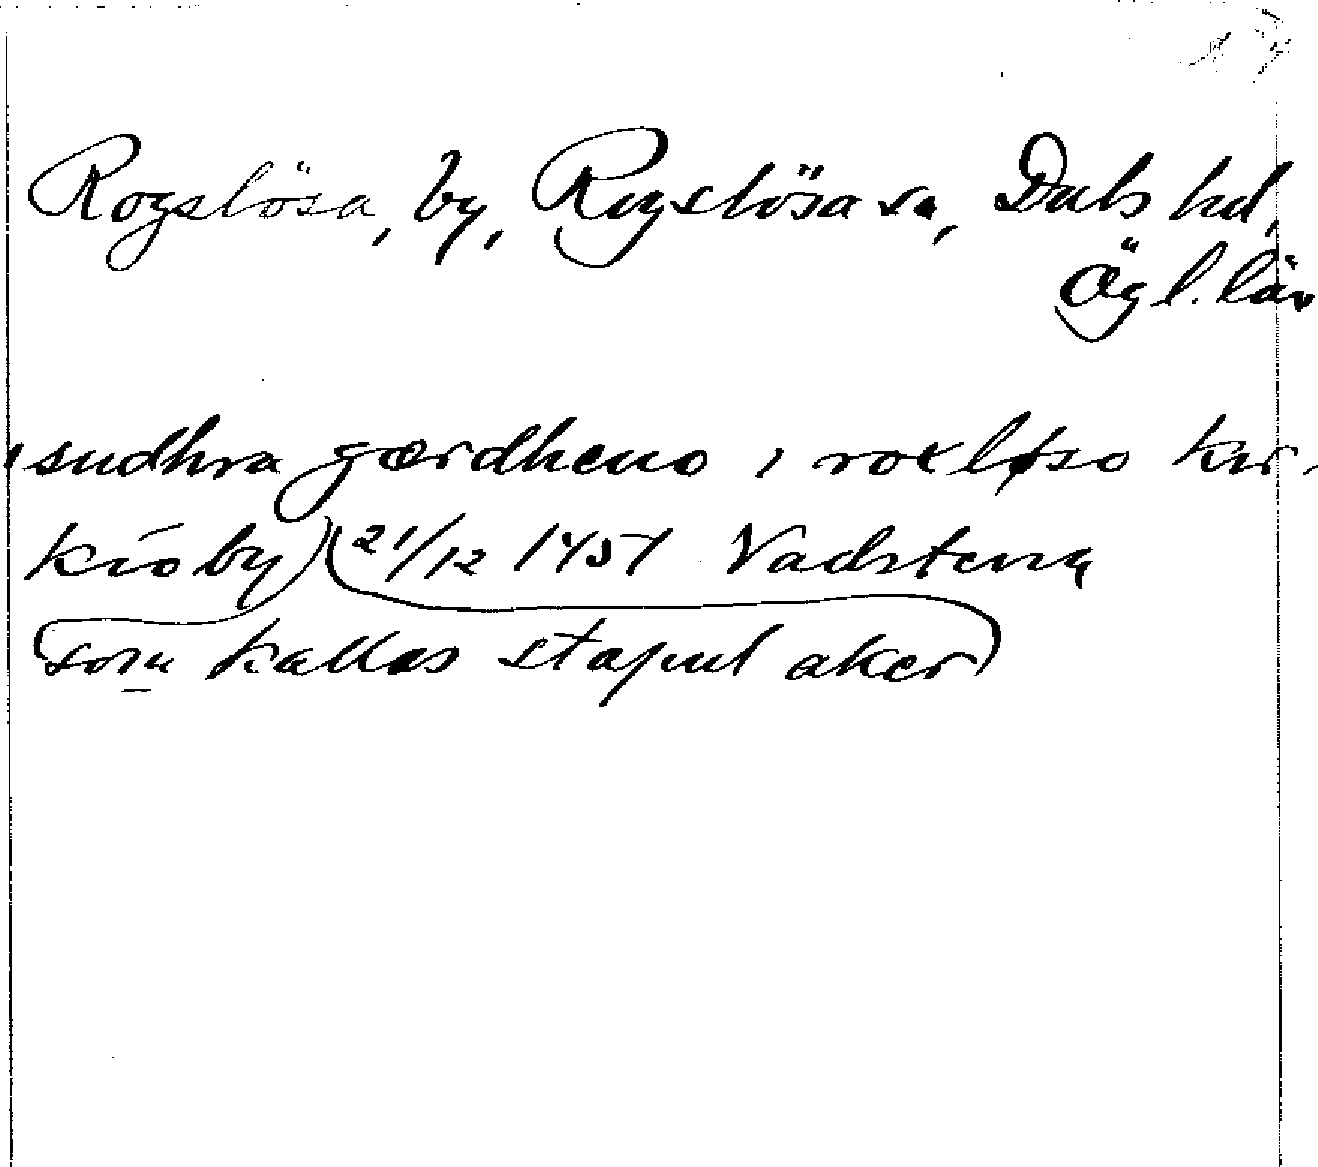 Rogslösa, by, Rogslösa sn, Dals hd,
Ögl. län
i sudhra gærdheno i roxløso kir-
kioby) (21/12 1451 Vadstena
som kallas stapul aker)